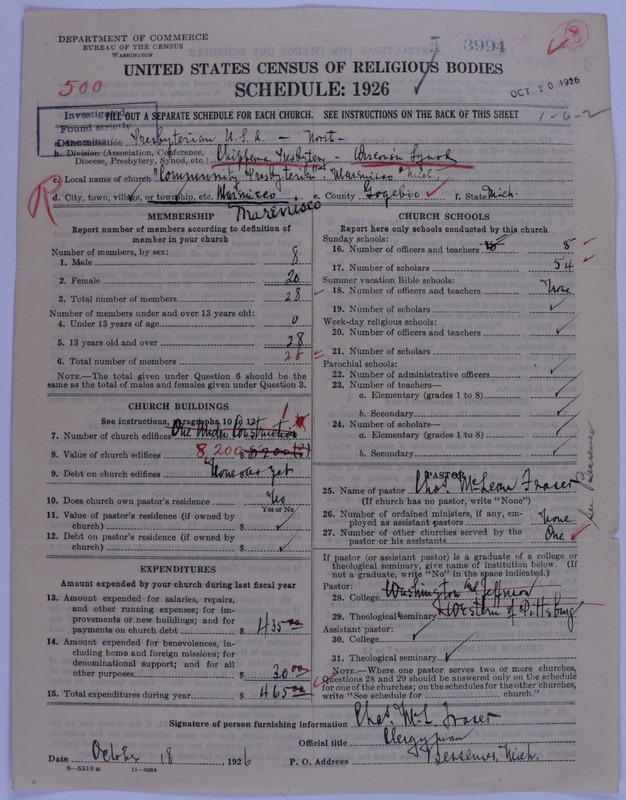 DEPARTMENT OF COMMERCE
BUREAU OF THE CENSUS
WASHINGTON
5 3994
8
500
UNITED STATES CENSUS OF RELIGIOUS BODIES
SCHEDULE: 1926
OCT 20 1926
FILL OUT A SEPARATE SCHEDULE FOR EACH CHURCH. SEE INSTRUCTIONS ON THE BACK OF THIS SHEET
1-6-2
Investigated
Found strictly
a. Denomination Presbyterian U.S.A. - North -
b. Division (Association, Conference, Diocese, Presbytery, Synod, etc.) Chippewa Presbytery - Wisconsin Synod
c. Local name of church "Community Presbyterian" - Marenisco Mich.
d. City, town, village, or township, etc. Marenisco e. County Gogebic f. State Mich.
Marenisco
R
MEMBERSHIP
Report number of members according to definition of member in your church
Number of members, by sex:
1. Male 8
2. Female 20
3. Total number of members 28
Number of members under and over 13 years old:
4. Under 13 years of age 0
5. 13 years old and over 28
6. Total number of members 28
NOTE.—The total given under Question 6 should be the same as the total of males and females given under Question 3.
CHURCH BUILDINGS
See instructions, paragraphs 10 to 12
7. Number of church edifices One Under Construction
8. Value of church edifices 8,200 8200 (?)
9. Debt on church edifices None as yet
10. Does church own pastor's residence No
Yes or No
11. Value of pastor's residence (if owned by church) $
12. Debt on pastor's residence (if owned by church) $
EXPENDITURES
Amount expended by your church during last fiscal year
13. Amount expended for salaries, repairs, and other running expenses; for improvements or new buildings; and for payments on church debt $ 435.00
14. Amount expended for benevolences, including home and foreign missions; for denominational support; and for all other purposes $ 30.00
15. Total expenditures during year $ 465.00
CHURCH SCHOOLS
Report here only schools conducted by this church
Sunday schools:
16. Number of officers and teachers 8
17. Number of scholars 54
Summer vacation Bible schools:
18. Number of officers and teachers None
19. Number of scholars
Week-day religious schools:
20. Number of officers and teachers
21. Number of scholars
Parochial schools:
22. Number of administrative officers
23. Number of teachers—
a. Elementary (grades 1 to 8)
b. Secondary
24. Number of scholars—
a. Elementary (grades 1 to 8)
b. Secondary
See Bessemer
PASTOR
25. Name of pastor Chas. McLean Fraser
(If church has no pastor, write "None")
26. Number of ordained ministers, if any, employed as assistant pastors None
27. Number of other churches served by the pastor or his assistants One
If pastor (or assistant pastor) is a graduate of a college or theological seminary, give name of institution below. (If not a graduate, write "No" in the space indicated.)
Pastor:
28. College Washington and Jefferson
29. Theological seminary Western of Pittsburg
Assistant pastor:
30. College
31. Theological seminary
NOTE.—Where one pastor serves two or more churches, Questions 28 and 29 should be answered only on the schedule for one of the churches; on the schedules for the other churches, write "See schedule for church."
Signature of person furnishing information Chas. McL. Fraser
Official title Clergyman
Date October 18 1926 P. O. Address Bessemer, Mich.
8—5519 a 11—9084